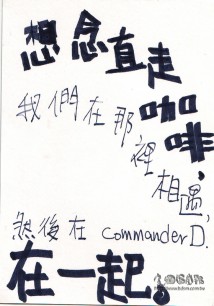 想念直走
我們在那裡
咖啡,
相遇,
然後在 commander D.
在一起。